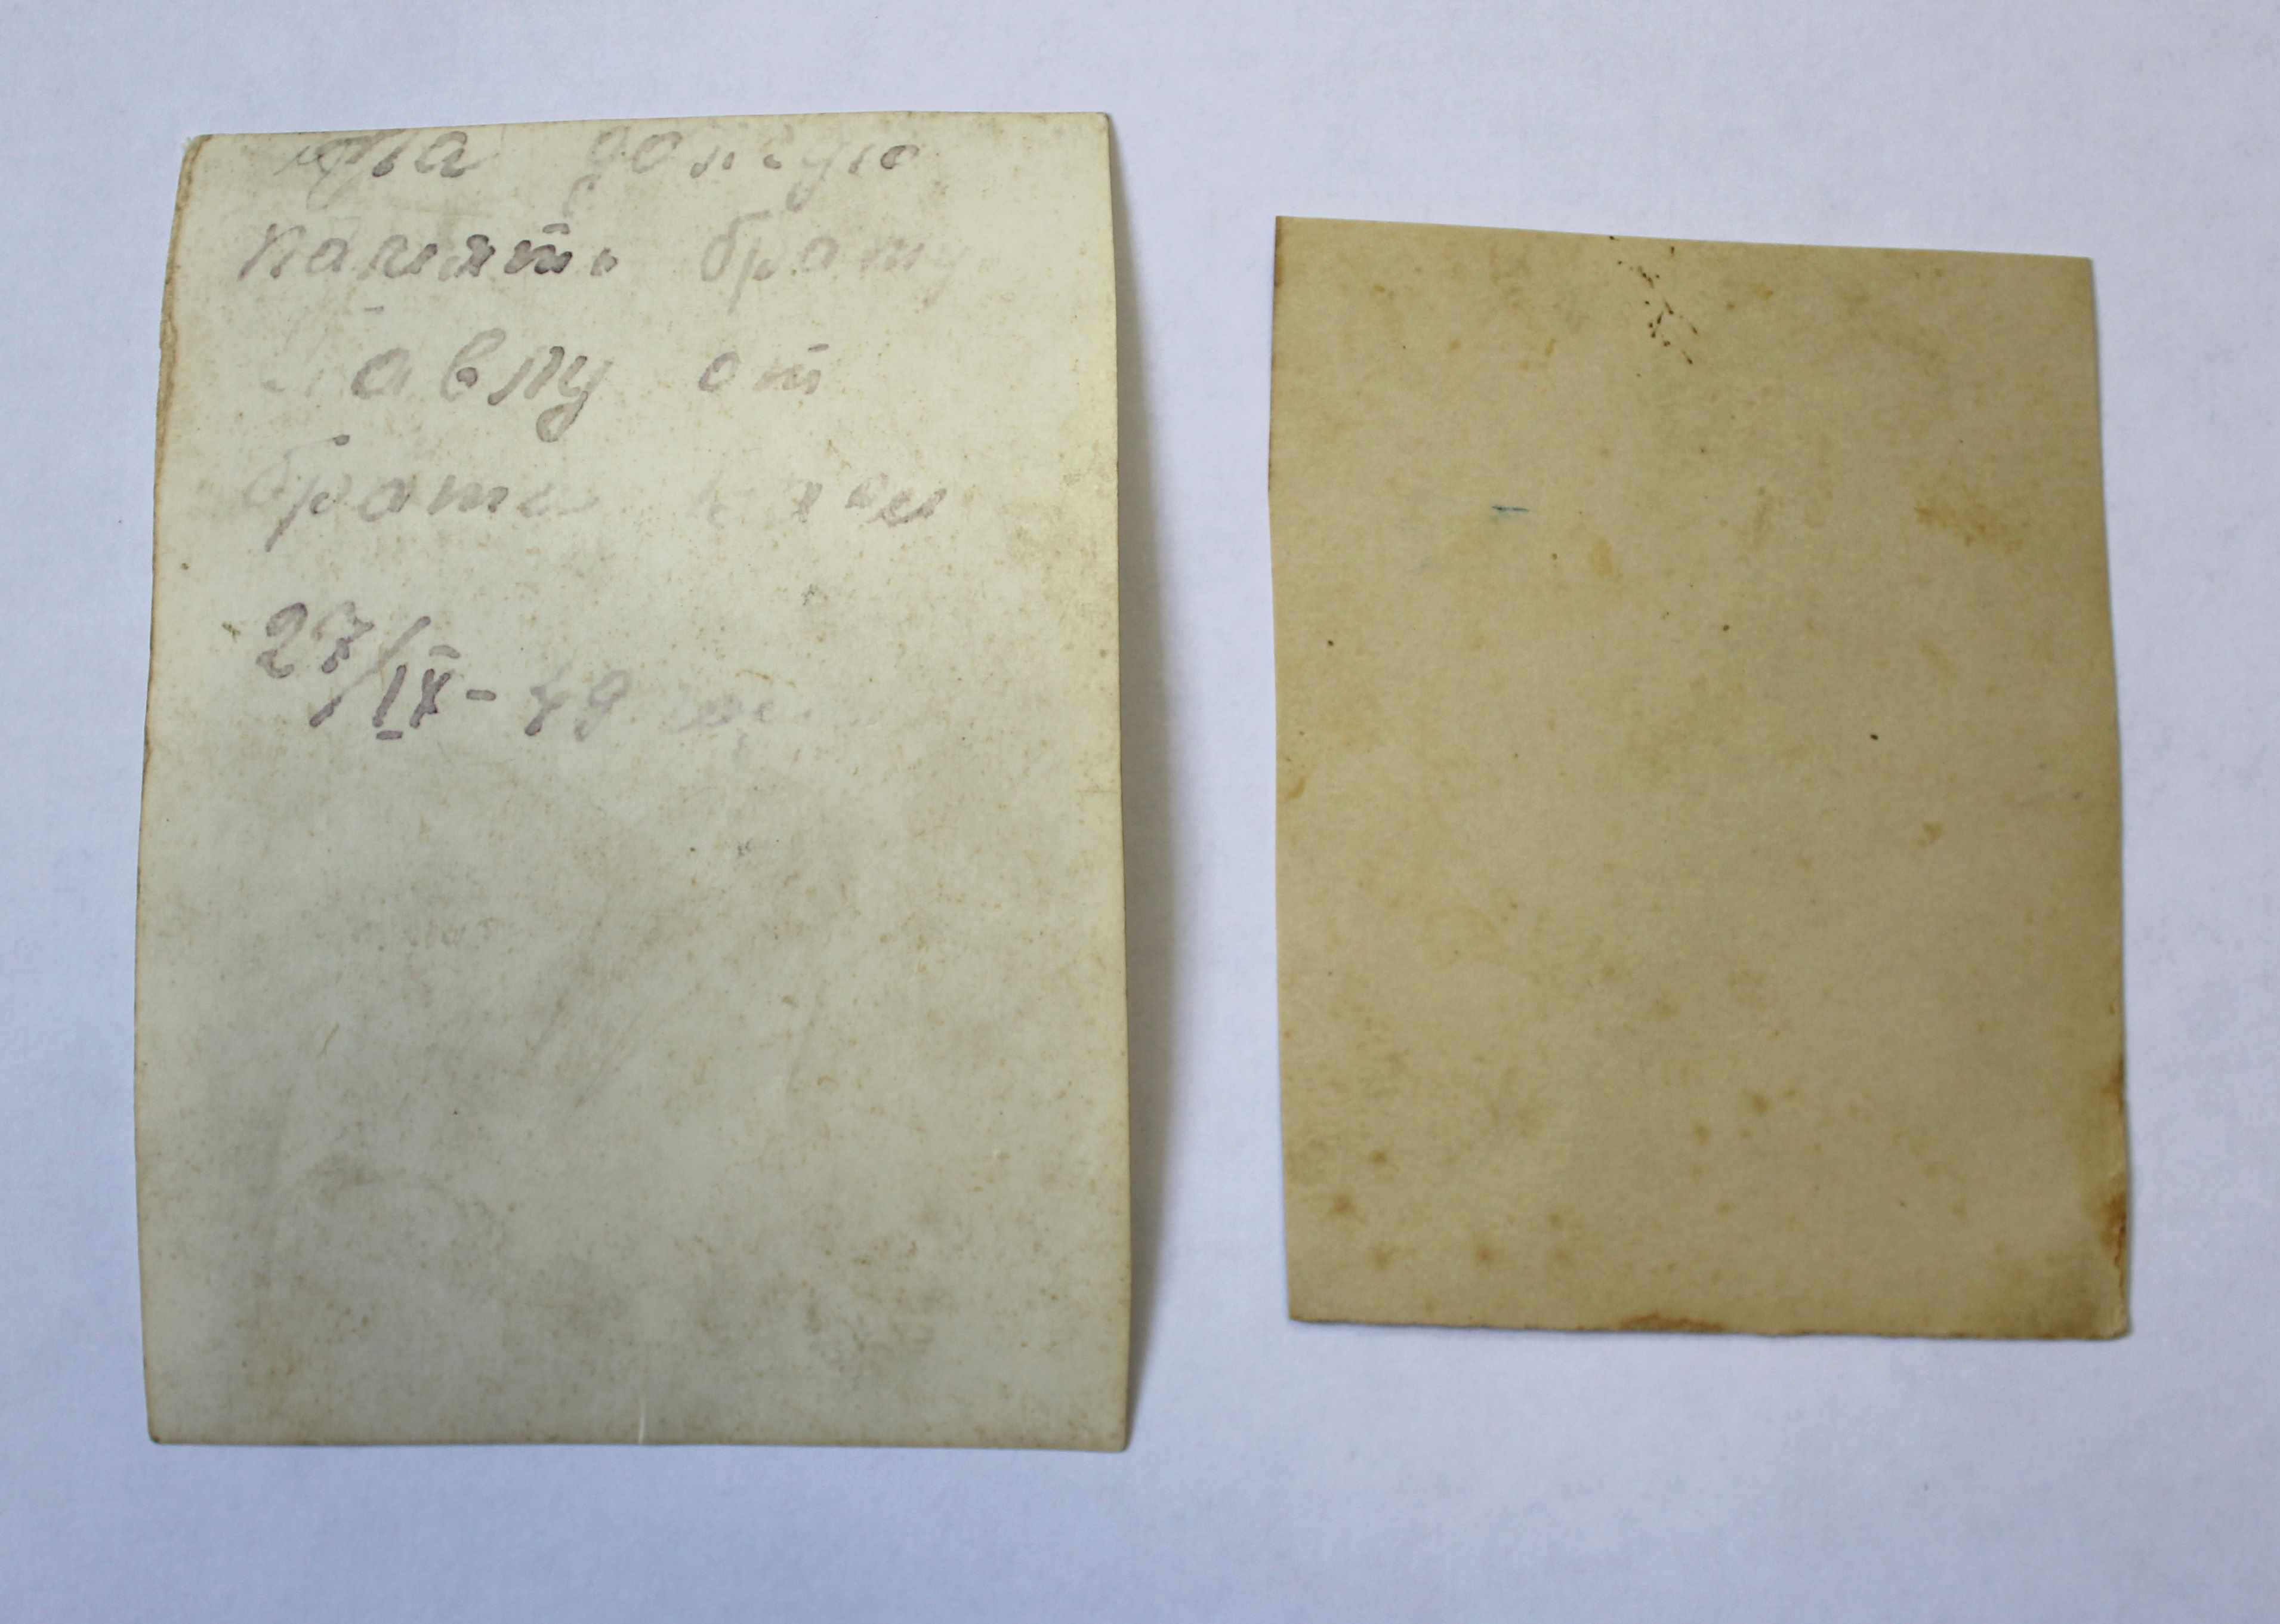 на долгую
память брату
Павлу от
брата
27/IX - 49